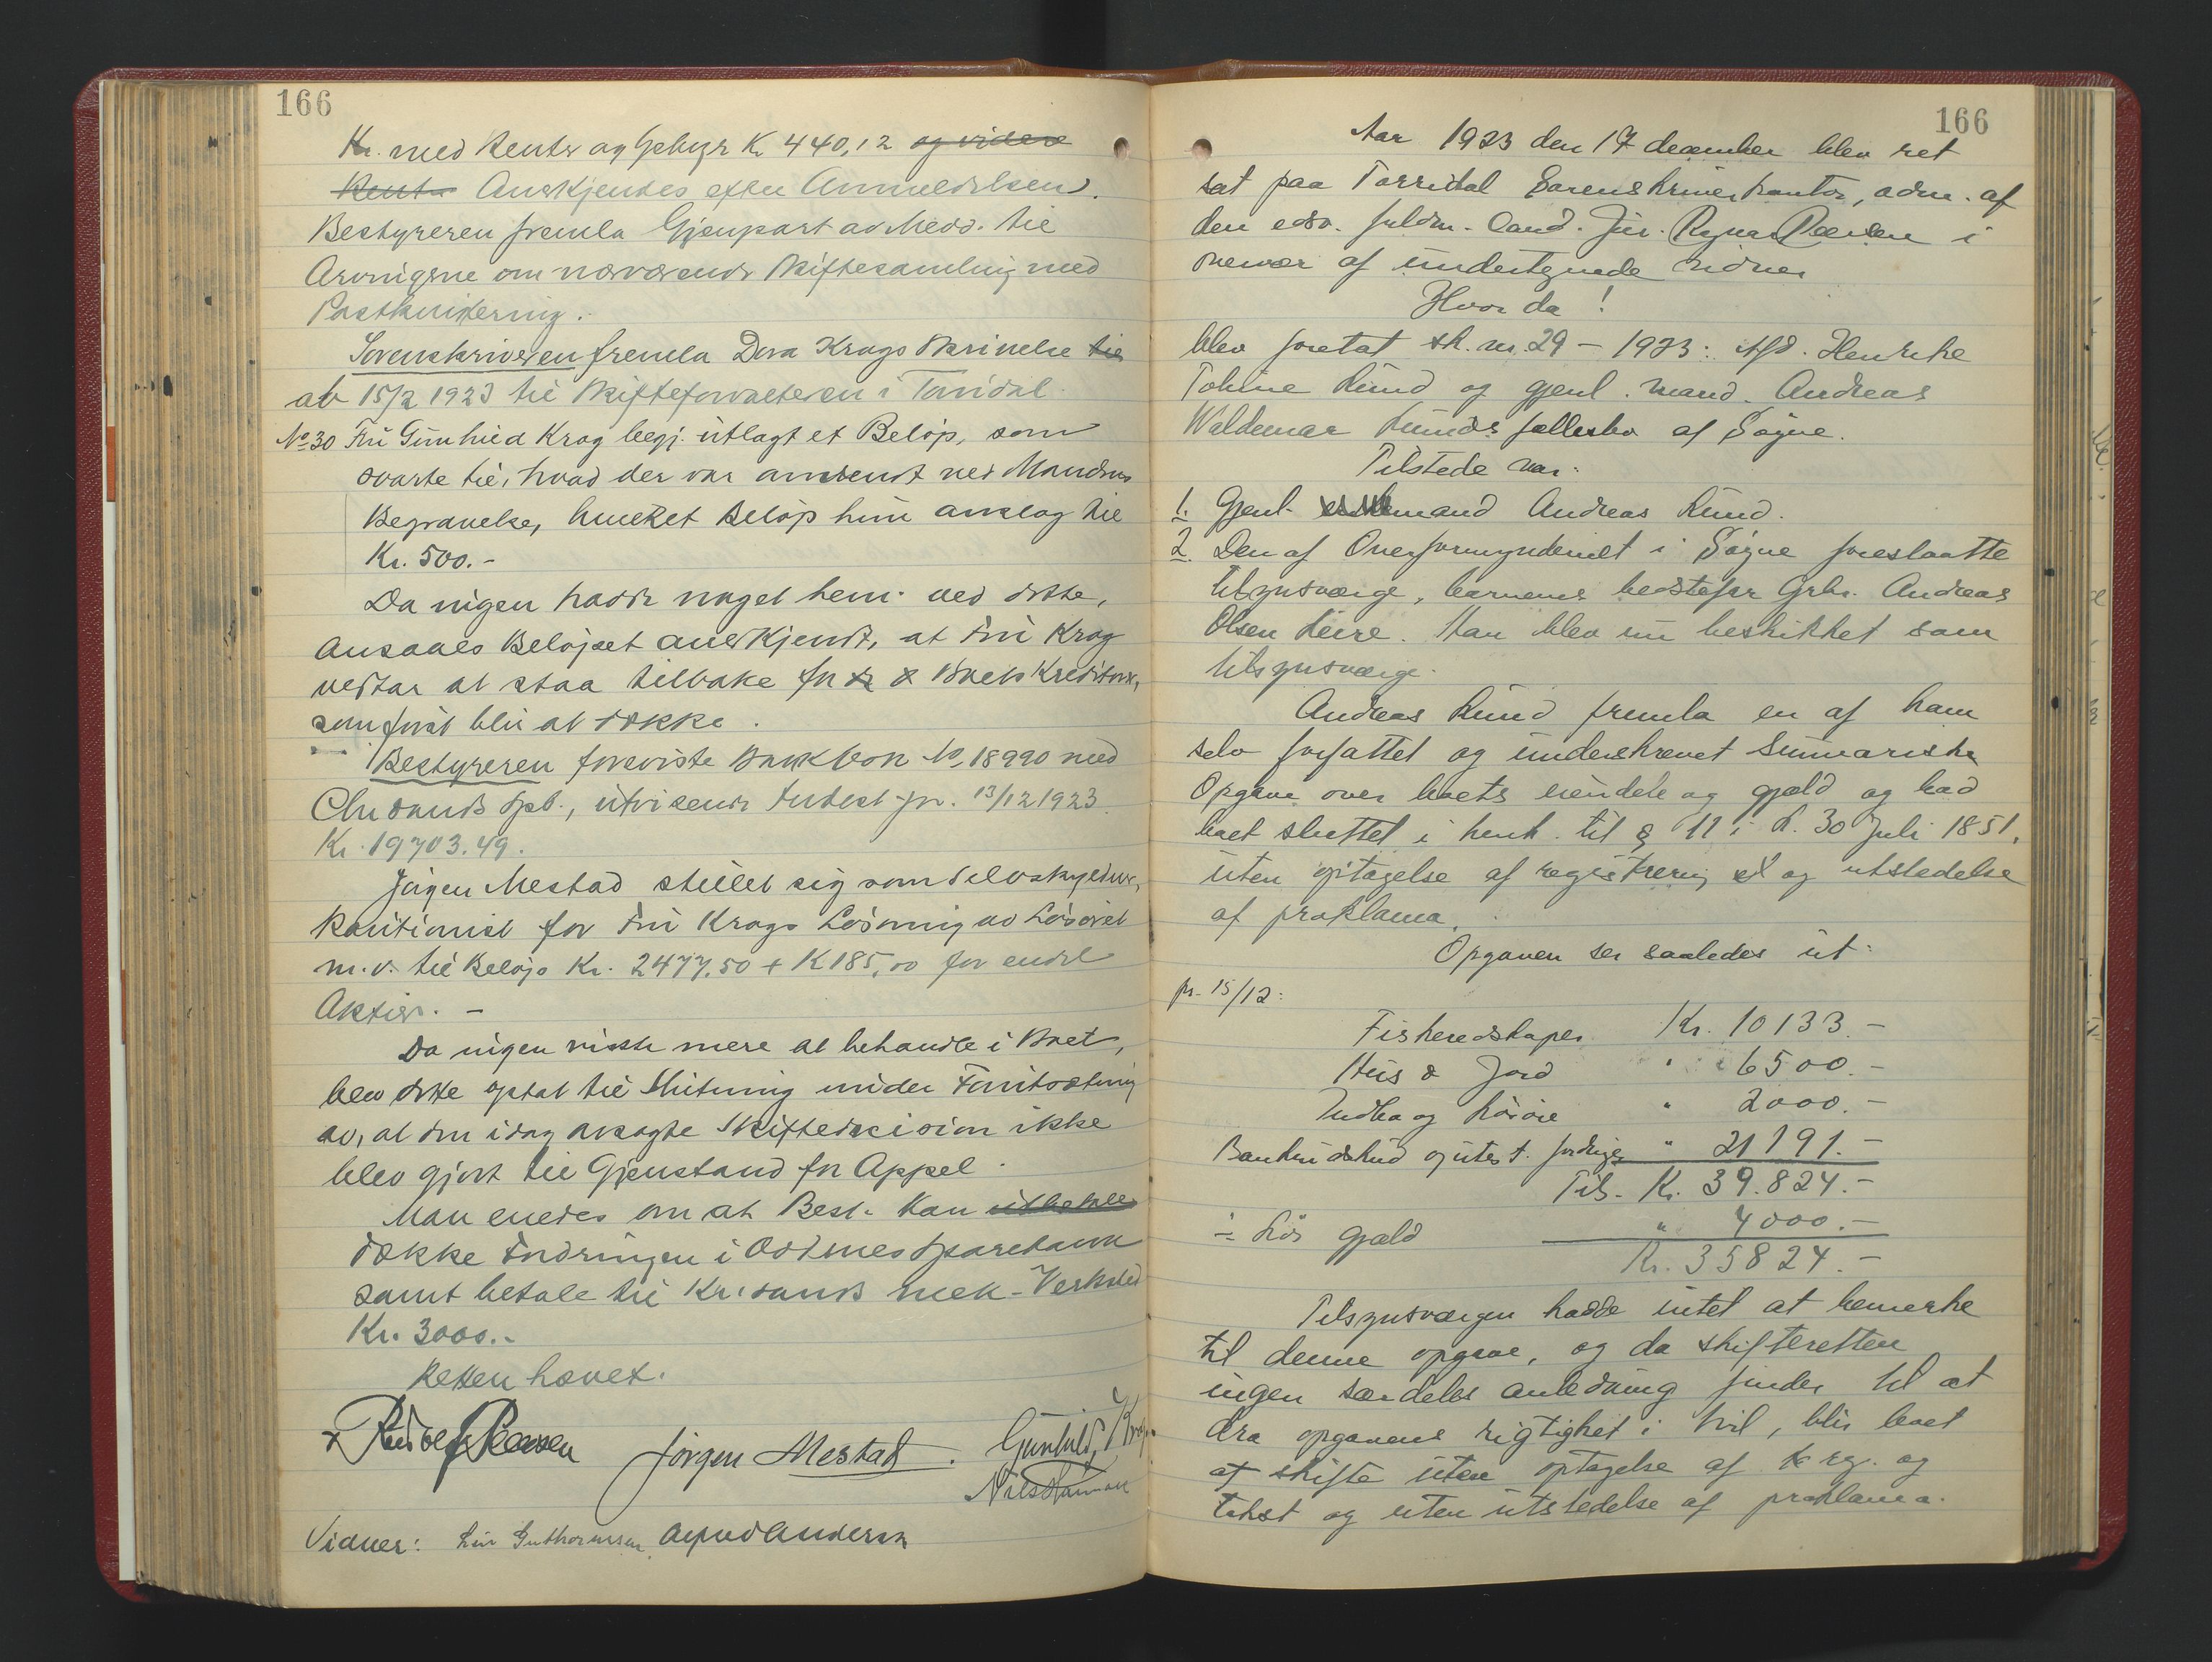 166
Kr. med Renter og Gebyr K. 440,12 og videre
Rente Anerkjendes efter Anmeldelsen.
Bestyreren fremla Gjenpart av Medd. til
Arvingerne om nærværende Skiftesamling med
Postkvittering.
Sorenskriveren fremla Dora Krags Skrivelse til
av 15/2 1923 til Skifteforvalteren i Torridal
No 30 Fru Gunhild Krag begj. utlagt et Beløp, som
svarte til, hvad der var anvendt ved Mandens
Begravelse, hvilket Beløp hun anslog til
Kr. 500.-
Da ingen hadde noget hem. ved dette,
ansaaes Beløpet anerkjendt, at Fru Krag
vedtar at staa tilbake for Boets Kreditorer,
som først blir at dække.
Bestyreren foreviste Bankbok No 18990 med
Chrsands Spb., utvisende Indest. pr. 13/12 1923
Kr. 19703.49.
Jørgen Mestad stillet sig som selvskyldner
Kautionist for Fru Krags Løsning av Løsøret
m.v. til Beløp Kr. 2477,50 + K 185,00 for endel
Aktier. -
Da ingen visste mere at behandle i Boet,
blev dette optat til Slutning under Forutsætning
av, at den idag avsagte Skiftedecision ikke
blev gjort til Gjenstand for Appel.
Man enedes om at Best. kan utbetale
dække Fordringen i Oddernes Sparebank
samt betale til Kr.sands mek. Verksted
Kr. 3000.-
Retten hævet.
Jørgen Mestad. Gunhild Krag
Vidner:
166
Aar 1923 den 17 december blev ret
sat paa Torridal Sorenskriverkontor, adm. af
den edsv. fuldm. Cand. Jur. Ragnar i
overvær af undertegnede vidner
Hvor da!
blev foretat sk. nr. 29 - 1923: Afd. Henrikke
Tobine Lund og gjenl. mand. Andreas
Waldemar Lunds fællesbo af Søgne.
Tilstede var:
1. Gjenl. mand Andreas Lund.
2. Den af Overformynderiet i Søgne foreslaatte
tilsynsværge, barnenes bedstefar Grbr. Andreas
Olsen Leire. Han blev nu beskikket som
tilsynsværge.
Andreas Lund fremla en af ham
selv forfattet og underskrevet Summarisk
Opgave over boets eiendele og gjæld og bad
boet sluttet i henh. til § 11 i L. 30 Juli 1851,
uten optagelse af registrering og utstedelse
af proklama.
Opgaven ser saaledes ut:
pr. 15/12:
Fiskeredskaper Kr. 10133.-
Hus & Jord " 6500.-
Indbo og Løsøre " 2000.-
Bankindskud og utest. fordringer " 21191.-
Tils. Kr. 39.824.-
÷ Løs gjæld " 4000.-
Kr. 35824.-
Tilsynsværgen hadde intet at bemerke
til denne opgave, og da skifteretten
ingen særdeles anledning finder til at
dra opgavens rigtighet i tvil, blir boet
at skifte uten optagelse af reg. og
takst og uten utstedelse af proklama.